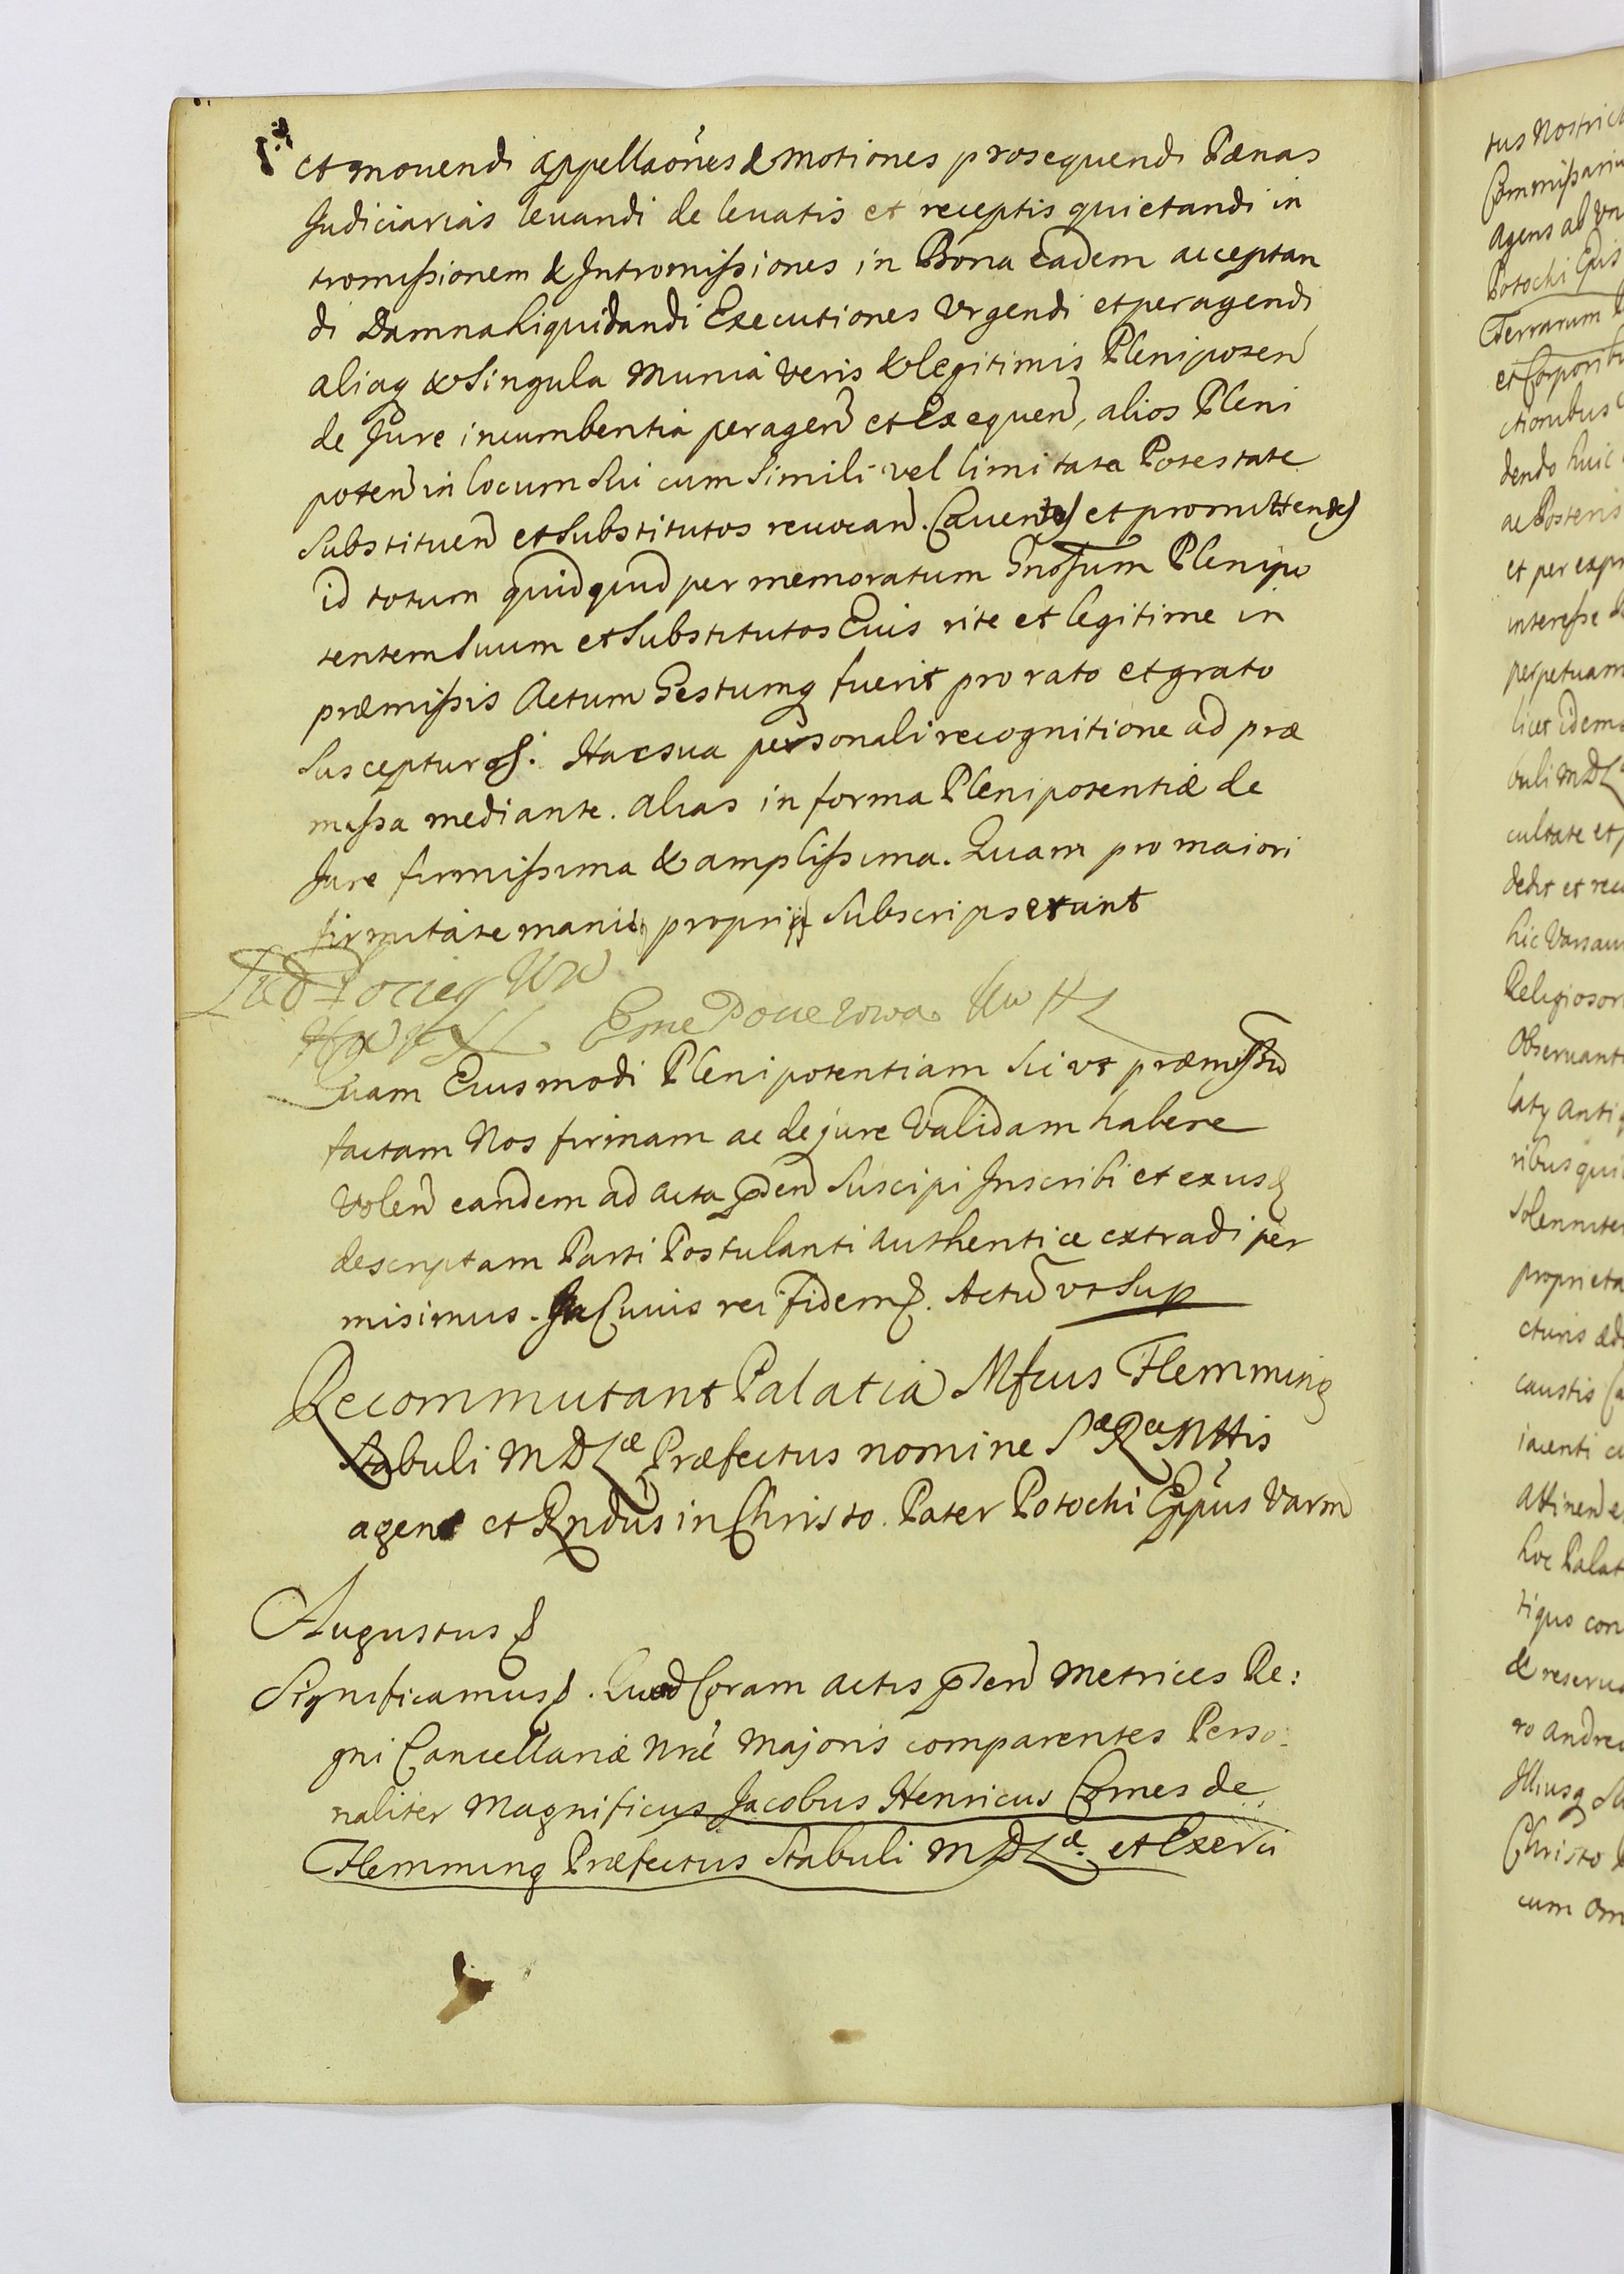 et mouendi appellaōnes & motiones prosequendi Pænas
Judiciarias leuandi de leuatis et receptis quietandi in
tromissionem & Intromissiones in Bona eadem acceptan
di Damna liquidandi Executiones Vrgendi et peragendi
aliaq & Singula Munia veris & legitimis Plenipoten
de Jure incumbentia peragen et Exequen, alios Pleni
poten in locum Sui cum Simili vel limitata Potestate
Substituen et Substitutos reuocan. Cauentes et promittentes
id totum quidquid per memoratum Gnosum Plenipo
tentem Suum et Substitutos Eius rite et legitime in
præmissis Actum Gestumq fuerit pro rato et grato
Suscepturos. Hac sua personali recognitione ad præ
missa mediante. Alias in forma Plenipotentiæ de
Jure firmissima & amplissima. Quam pro maiori
firmitate manibus propriis Subscripserunt
Lud Pociey
Quam Eiusmodi Plenipotentiam Sic vt præmissū
factam Nos firmam ac de jure Validam habere
Volen eandem ad acta pden Suscipi Inscribi et ex usq
descriptam Parti Postulanti Authentice extradi per
misimus. In Cuius rei fidem. Actū vt Sup
Recommutant Palatia Mfcus Flemming
Stabuli M D Læ Præfectus nomine Sæ Ræ Mttis
agens et Rndūs in Christo Pater Potochi Eppūs Varm
Augustus
Significamus. Quod Coram actis pden Metrices Re:
gni Cancellariæ Nræ Majoris comparentes Perso:
naliter Magnificus Jacobus Henricus Comes de
Flemming Præfectus Stabuli M D Læ. et Exerci
tus Nostri
agens ab vn
Potochi Epis
Terrarum
dendo huic
ac Posteris
et per expr
interesse
perpetuam
licet idem
buli M D L
cultate et
dedit et rec
hic Varsau
Religiosor
Obseruant
ribus qui
Solenniter
proprieta
cturis ædi
caustis
iacenti
attinen
hoc Palat
tiquo con
& reserua
ro Andrea
Illiusq
Christo
cum om